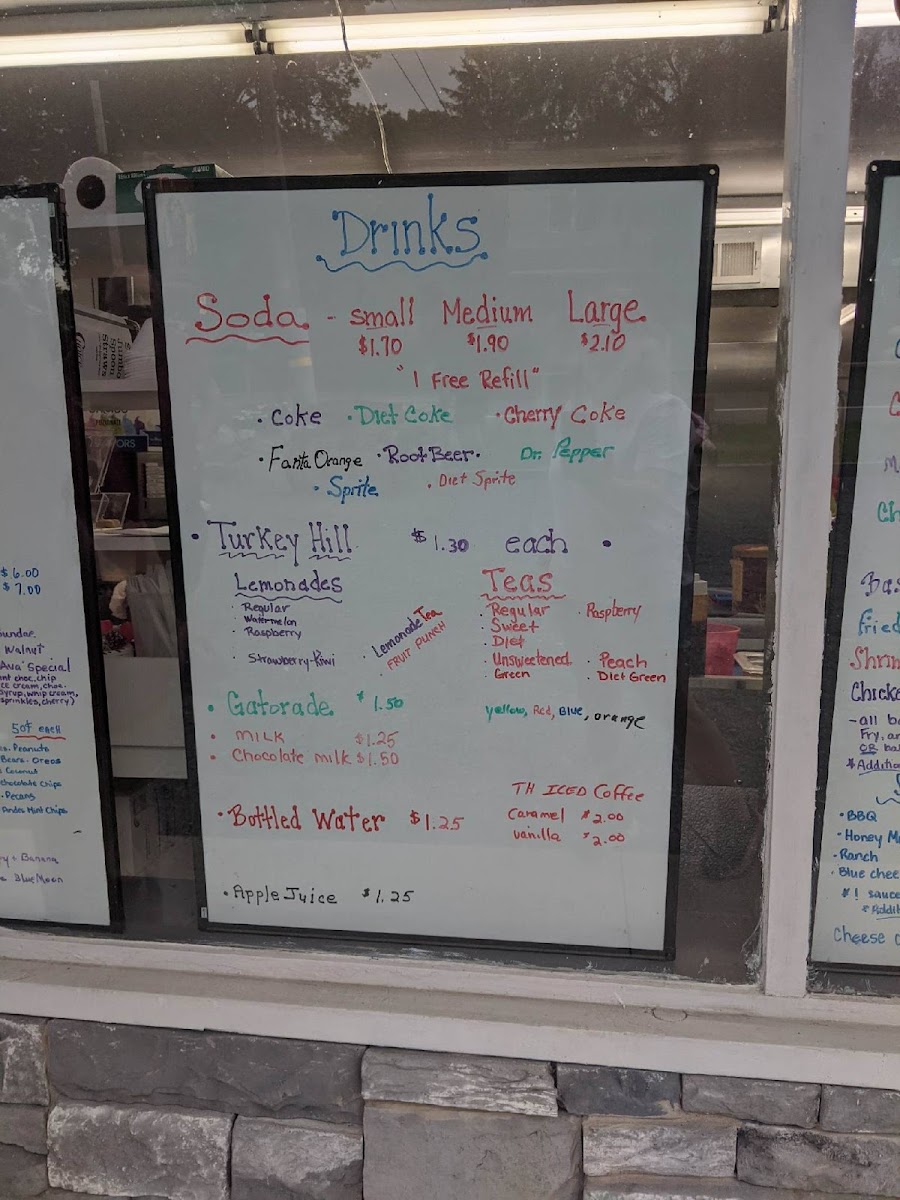 Drinks
Soda - small Medium Large
$1.70 $1.90 $2.10
"1 Free Refill"
• Coke • Diet Coke • Cherry Coke
• Fanta Orange • Root Beer • Dr. Pepper
• Sprite • Diet Sprite
• Turkey Hill $1.30 each •
Lemonades Teas
• Regular
• Watermelon
• Raspberry
• Strawberry-Kiwi
• Lemonade Tea
• FRUIT PUNCH
• Regular • Raspberry
• Sweet
• Diet
• Unsweetened • Peach
Green • Diet Green
• Gatorade $1.50 yellow, Red, Blue, orange
• MILK $1.25
• Chocolate milk $1.50
TH ICED Coffee
Caramel $2.00
vanilla $2.00
• Bottled Water $1.25
• Apple Juice $1.25
$6.00
$7.00
Walnut
Ava Special
sprinkles, cherry)
50¢ each
Peanuts
Bears - Oreos
Coconut
chocolate Chips
• Pecans
Andes Mint Chips
Banana
Blue Moon
Jumbo
Spoon
Straws
fried
- all
Fry,
OR
• BBQ
• Honey
• Ranch
• Blue
$1 sauce
Cheese